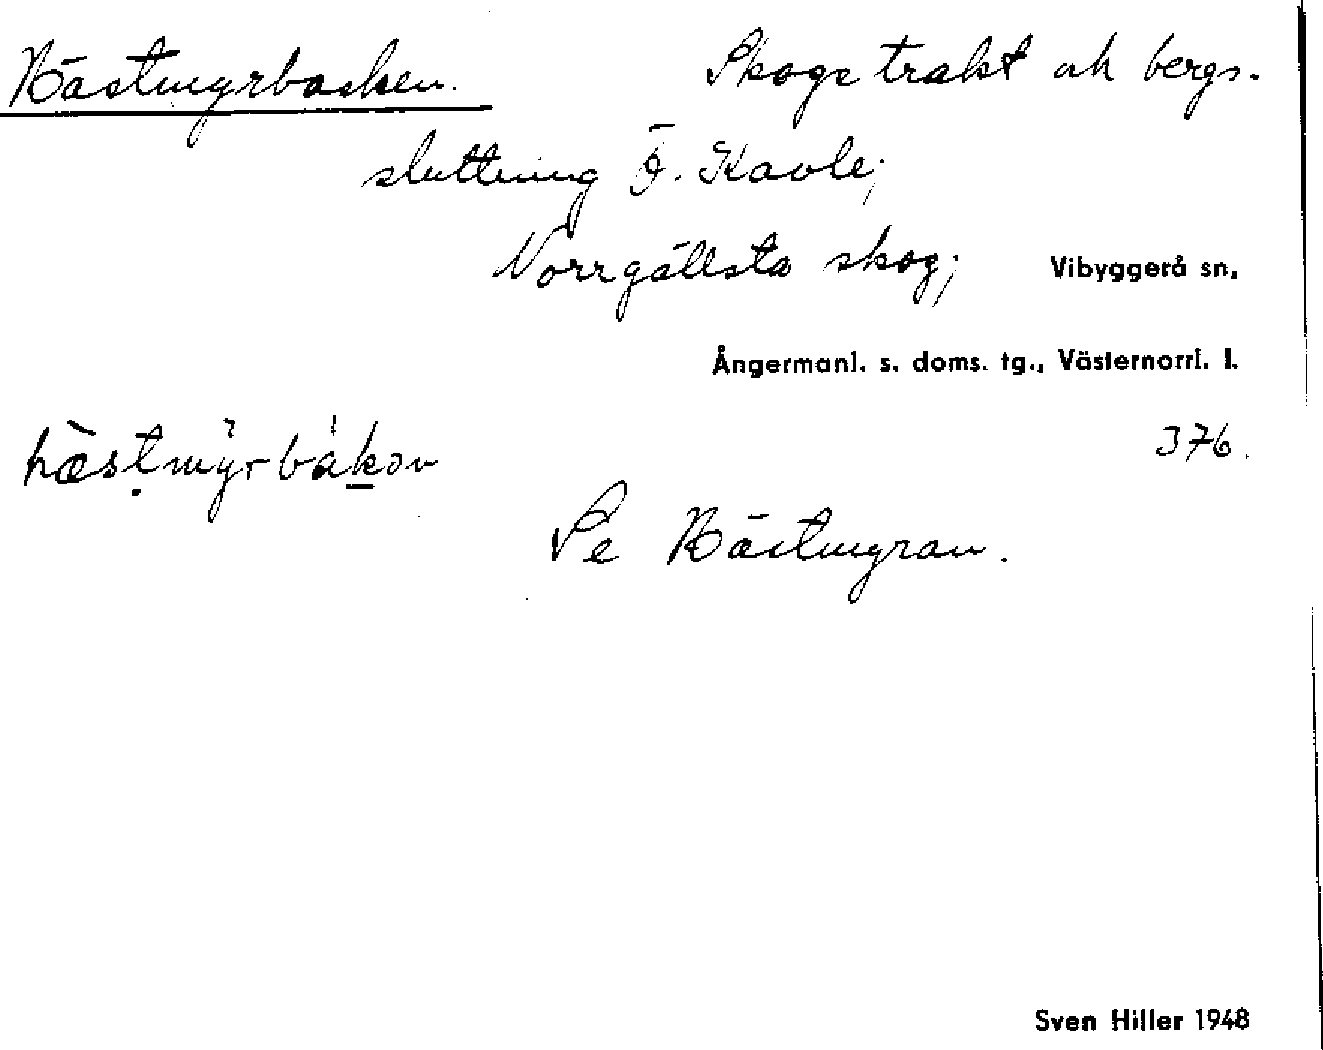 Hästmyrbacken. Skogstrakt och bergs-
sluttning Ö. Kavle;
Norrgällsta skog; Vibyggerå sn.
Ångermanl. s. doms. tg., Västernorrl. l.
hæ̀stmŷrbàkɔn 376.
Se Hästmyran.
Sven Hiller 1948